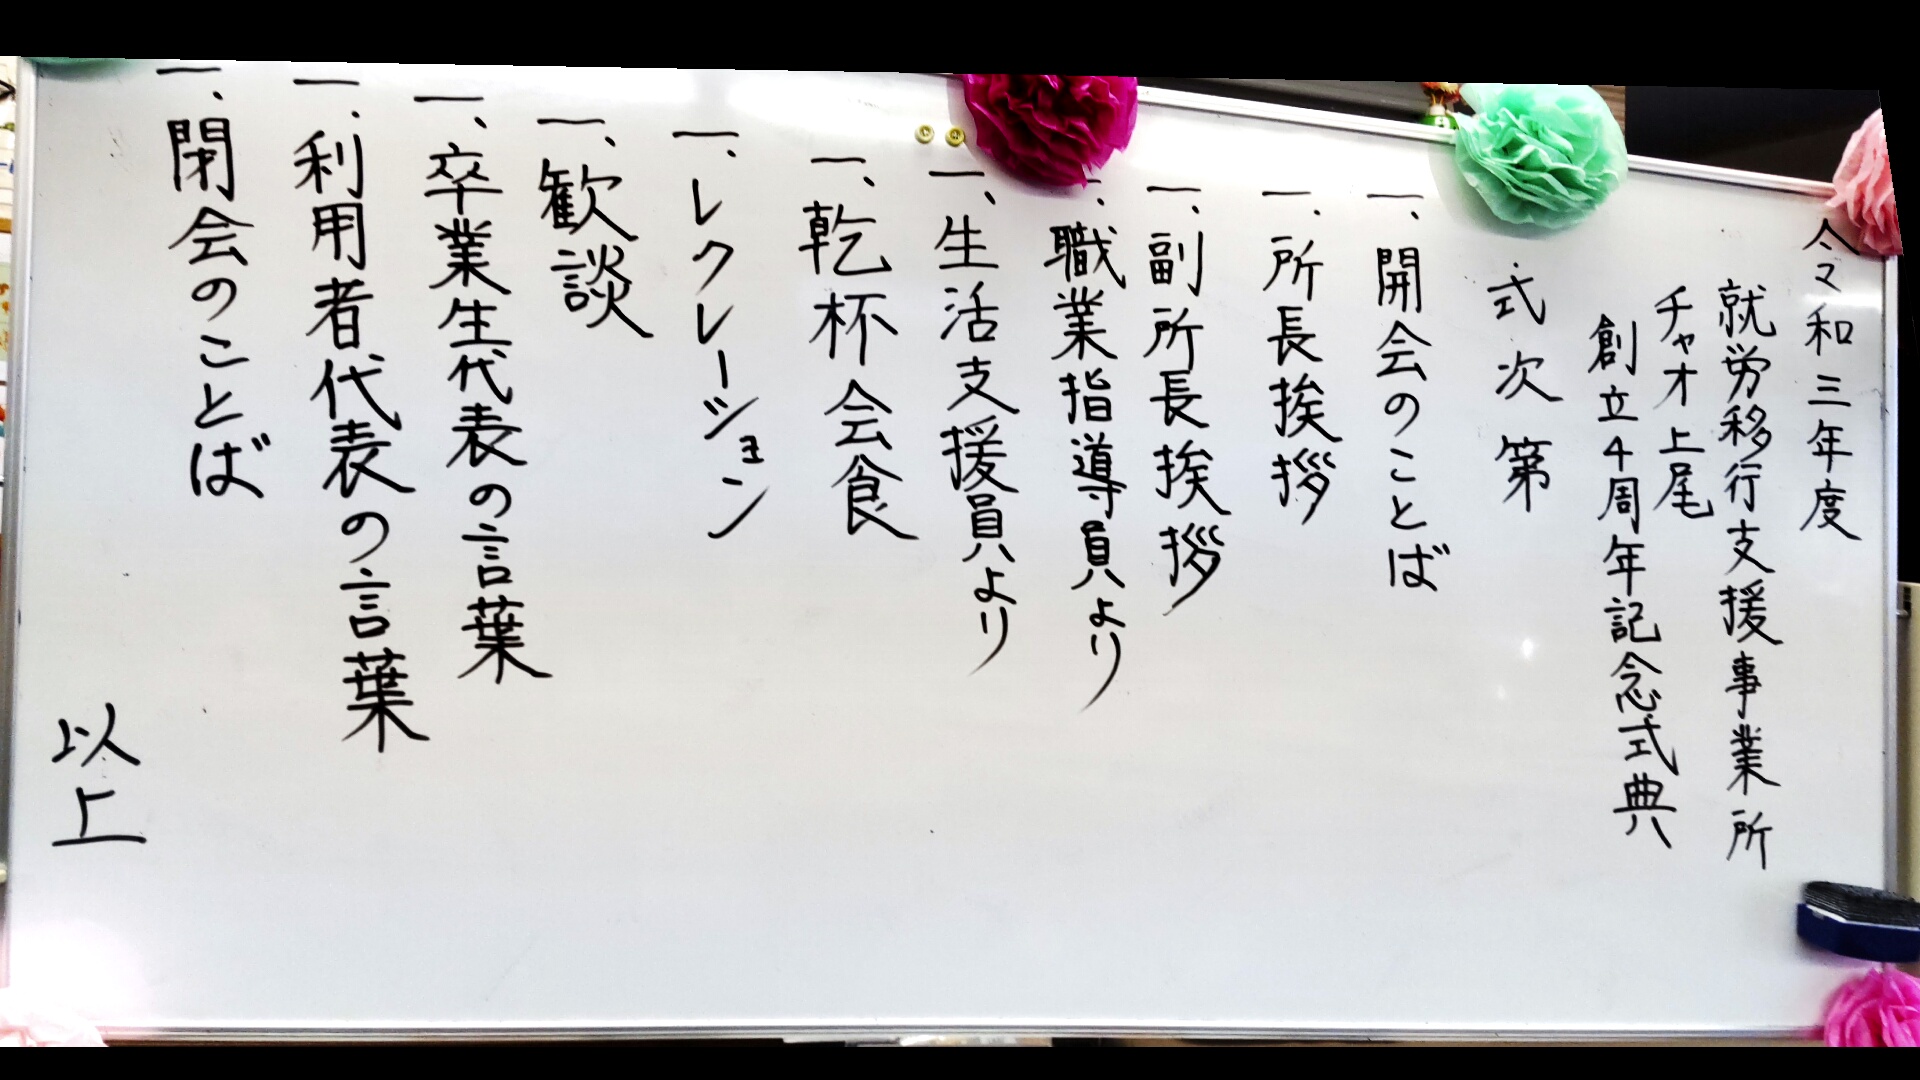 令和三年度
就労移行支援事業所
チャオ上尾
創立4周年記念式典
式次第
一、開会のことば
一、所長挨拶
一、副所長挨拶
一、職業指導員より
一、生活支援員より
一、乾杯会食
一、レクレーション
一、歓談
一、卒業生代表の言葉
一、利用者代表の言葉
一、閉会のことば
以上